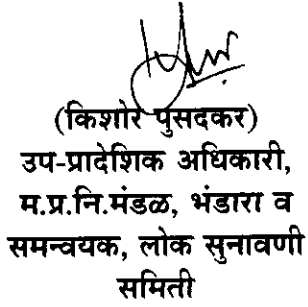 (किशोर पुसदकर)
उप-प्रादेशिक अधिकारी,
म.प्र.नि.मंडळ, भंडारा व
समन्वयक, लोक सुनावणी
समिती